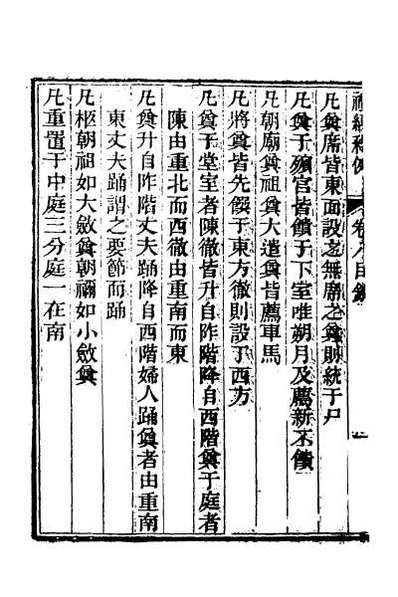 禮經釋例 卷八目錄
凡奠席皆東面設之無席之奠則統于尸
凡奠于殯宮皆饋于下室唯朔月及薦新不饋
凡朝廟奠祖奠大遣奠皆薦車馬
凡將奠皆先饌于東方徹則設于西方
凡奠于堂室者陳徹皆升自阼階降自西階奠于庭者
陳由重北而西徹由重南而東
凡奠升自阼階丈夫踊降自西階婦人踊奠者由重南
東丈夫踊謂之要節而踊
凡柩朝祖如大斂奠朝禰如小斂奠
凡重置于中庭三分庭一在南